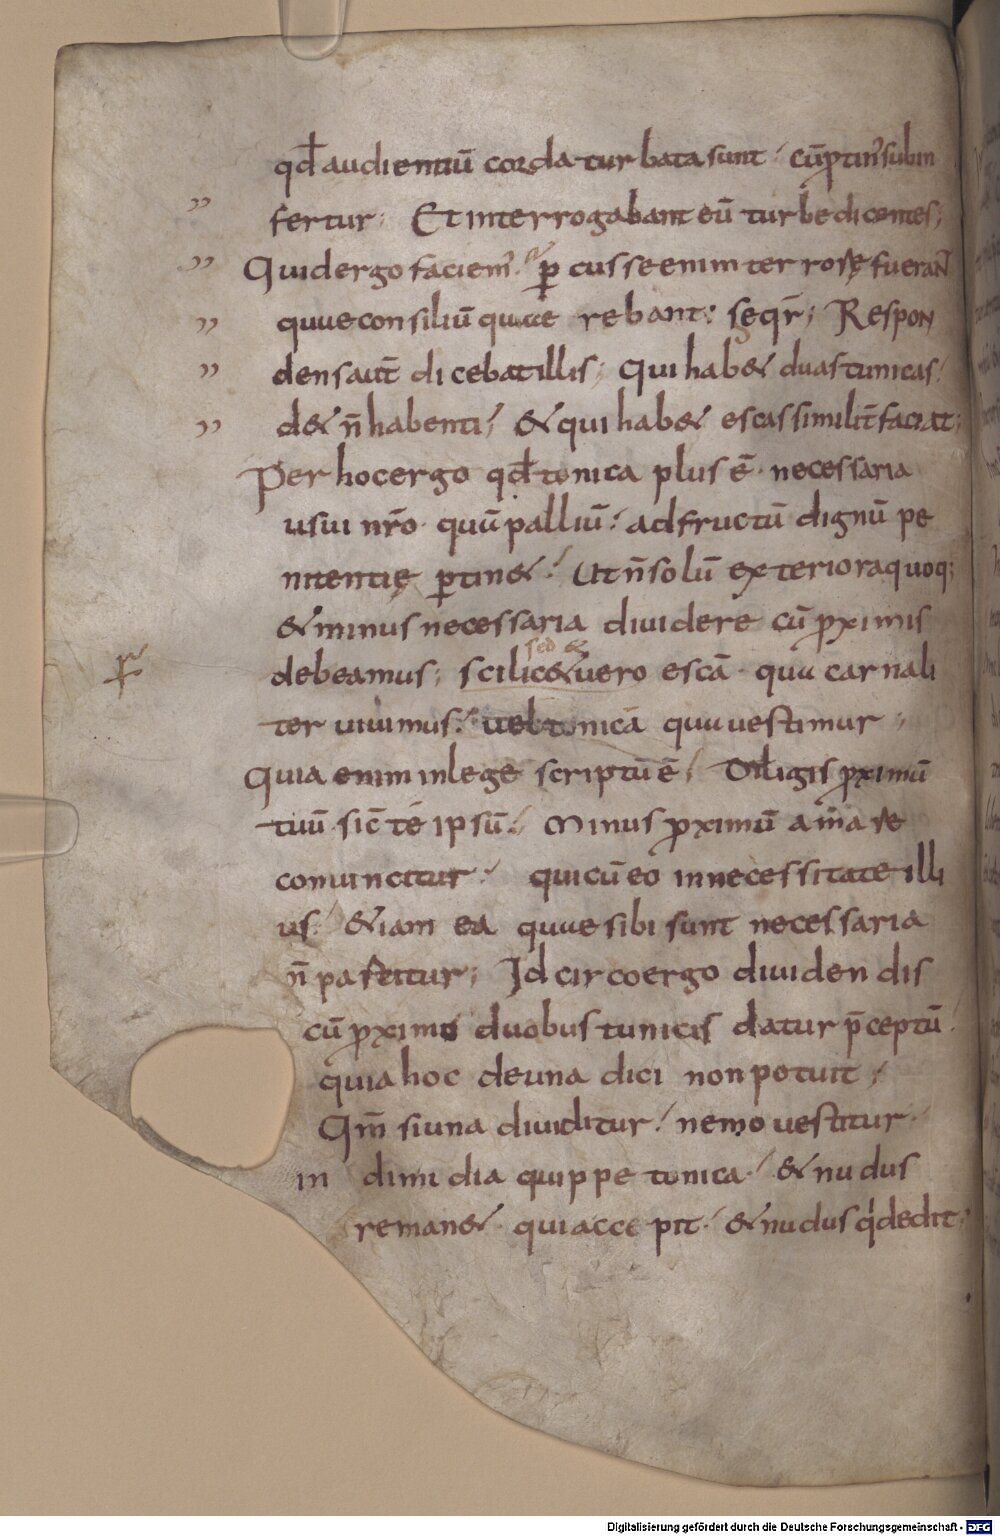 qđ audientiū corda turbata sunt · cū ptin' subin
” fertur · Et interrogabant eū turbe dicentes;
” Quid ergo faciem' · p̱cusse enim terrore fuerant
” quae consiliū quaerebant: seqr̄; Respon
” dens aut̄ dicebat illis; Qui hab& duas tunicas
” d& n̄ habenti; & qui hab& escas similit̄ faciat;
Per hoc ergo qđ tonica plus ē necessaria
usui nr̄o quā palliū: ad fructū dignū pe
nitentię p̱tin&; Ut n̄ solū exteriora quoq;
& minus necessaria dividere cū p̱ximis
sed &
debeamus; scilic& vero escā qua carnali
ter vivimus; vel tonicā qua vestimur
Quia enim in lege scriptū ē; Diligis p̱ximū
tuū sic̄ te ipsū; Minus p̱ximū amare
convincitur · qui cū eo in necessitate illi
us · &iam ea quae sibi sunt necessaria
n̄ partitur; Idcirco ergo dividendis
cū p̱ximo duobus tunicis datur p̄ceptū
quia hoc de una dici non potuit;
Qm̄ si una dividitur nemo vestitur
in dimidia quippe tonica · & nudus
reman& qui accepit · & nudus q' dedit;
Digitalisierung gefördert durch die Deutsche Forschungsgemeinschaft - DFG